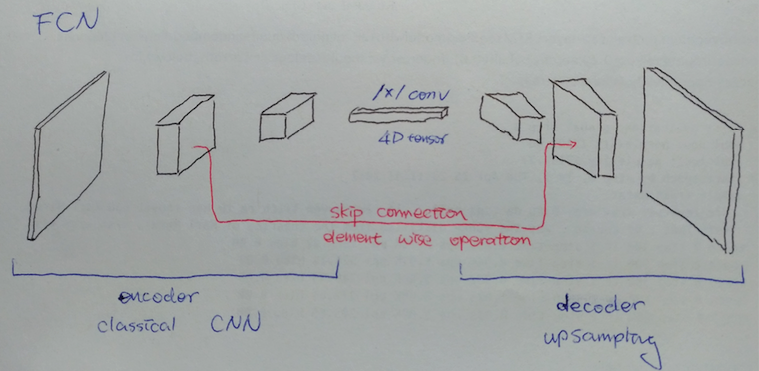 FCN
1x1 conv
4D tensor
skip connection
element wise operation
encoder
classical CNN
decoder
upsampling